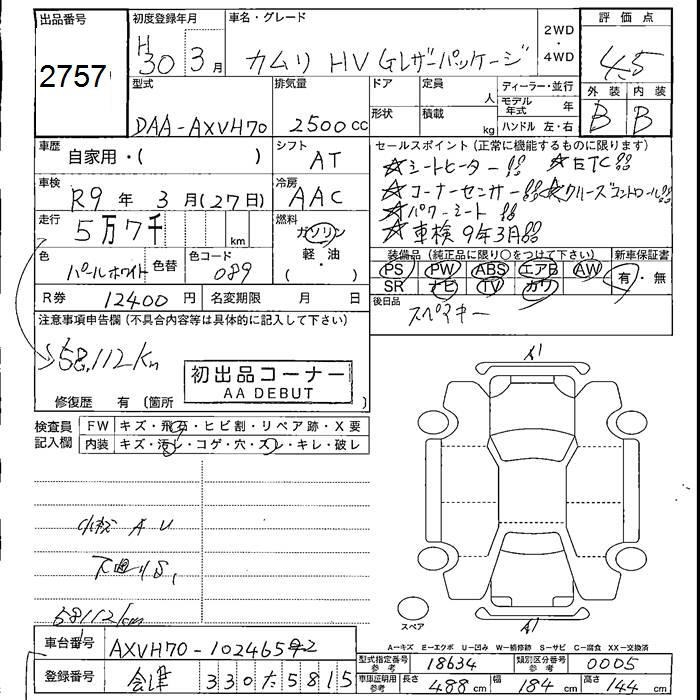 出品番号
2757
初度登録年月
H30 3月
車名・グレード
カムリ HV Gレザーパッケージ
2WD・4WD
評価点
4.5
型式
DAA-AXVH70
排気量
2500cc
ドア
形状
定員 人
積載 kg
ディーラー・並行
モデル年式 年
ハンドル 左・右
外装 内装
B B
車歴
自家用・( )
シフト
AT
セールスポイント(正常に機能するものに限ります)
☆シートヒーター!! ☆ETC!!
☆コーナーセンサー!! ☆クルーズコントロール!!
☆パワーシート!!
☆車検9年3月!!
車検
R9年3月(27日)
冷房
AAC
走行
5万7千 km
燃料
ガソリン
軽・油
( )
色
パールホワイト
色替
色コード
089
装備品(純正品に限り○をつけて下さい)
PS PW ABS エアB AW
SR ナビ TV カワ
新車保証書
有・無
R券 12400円
名変期限 月 日
後日品
スペアキー
注意事項申告欄(不具合内容等は具体的に記入して下さい)
58,112Km
初出品コーナー
AA DEBUT
修復歴 有(箇所 )
検査員記入欄
FW キズ・飛石・ヒビ割・リペア跡・X要
内装 キズ・汚レ・コゲ・穴・スレ・キレ・破レ
小キズ A U
下廻りS,
58112km
A1
A1
スペア
車台番号
AXVH70-1024659
登録番号
会津 330 た 5815
A-キズ E-エクボ U-凹み W-補修跡 S-サビ C-腐食 XX-交換済
型式指定番号 参考 18634
類別区分番号 参考 0005
車庫証明用 参考 長さ 488cm 幅 184cm 高さ 144cm